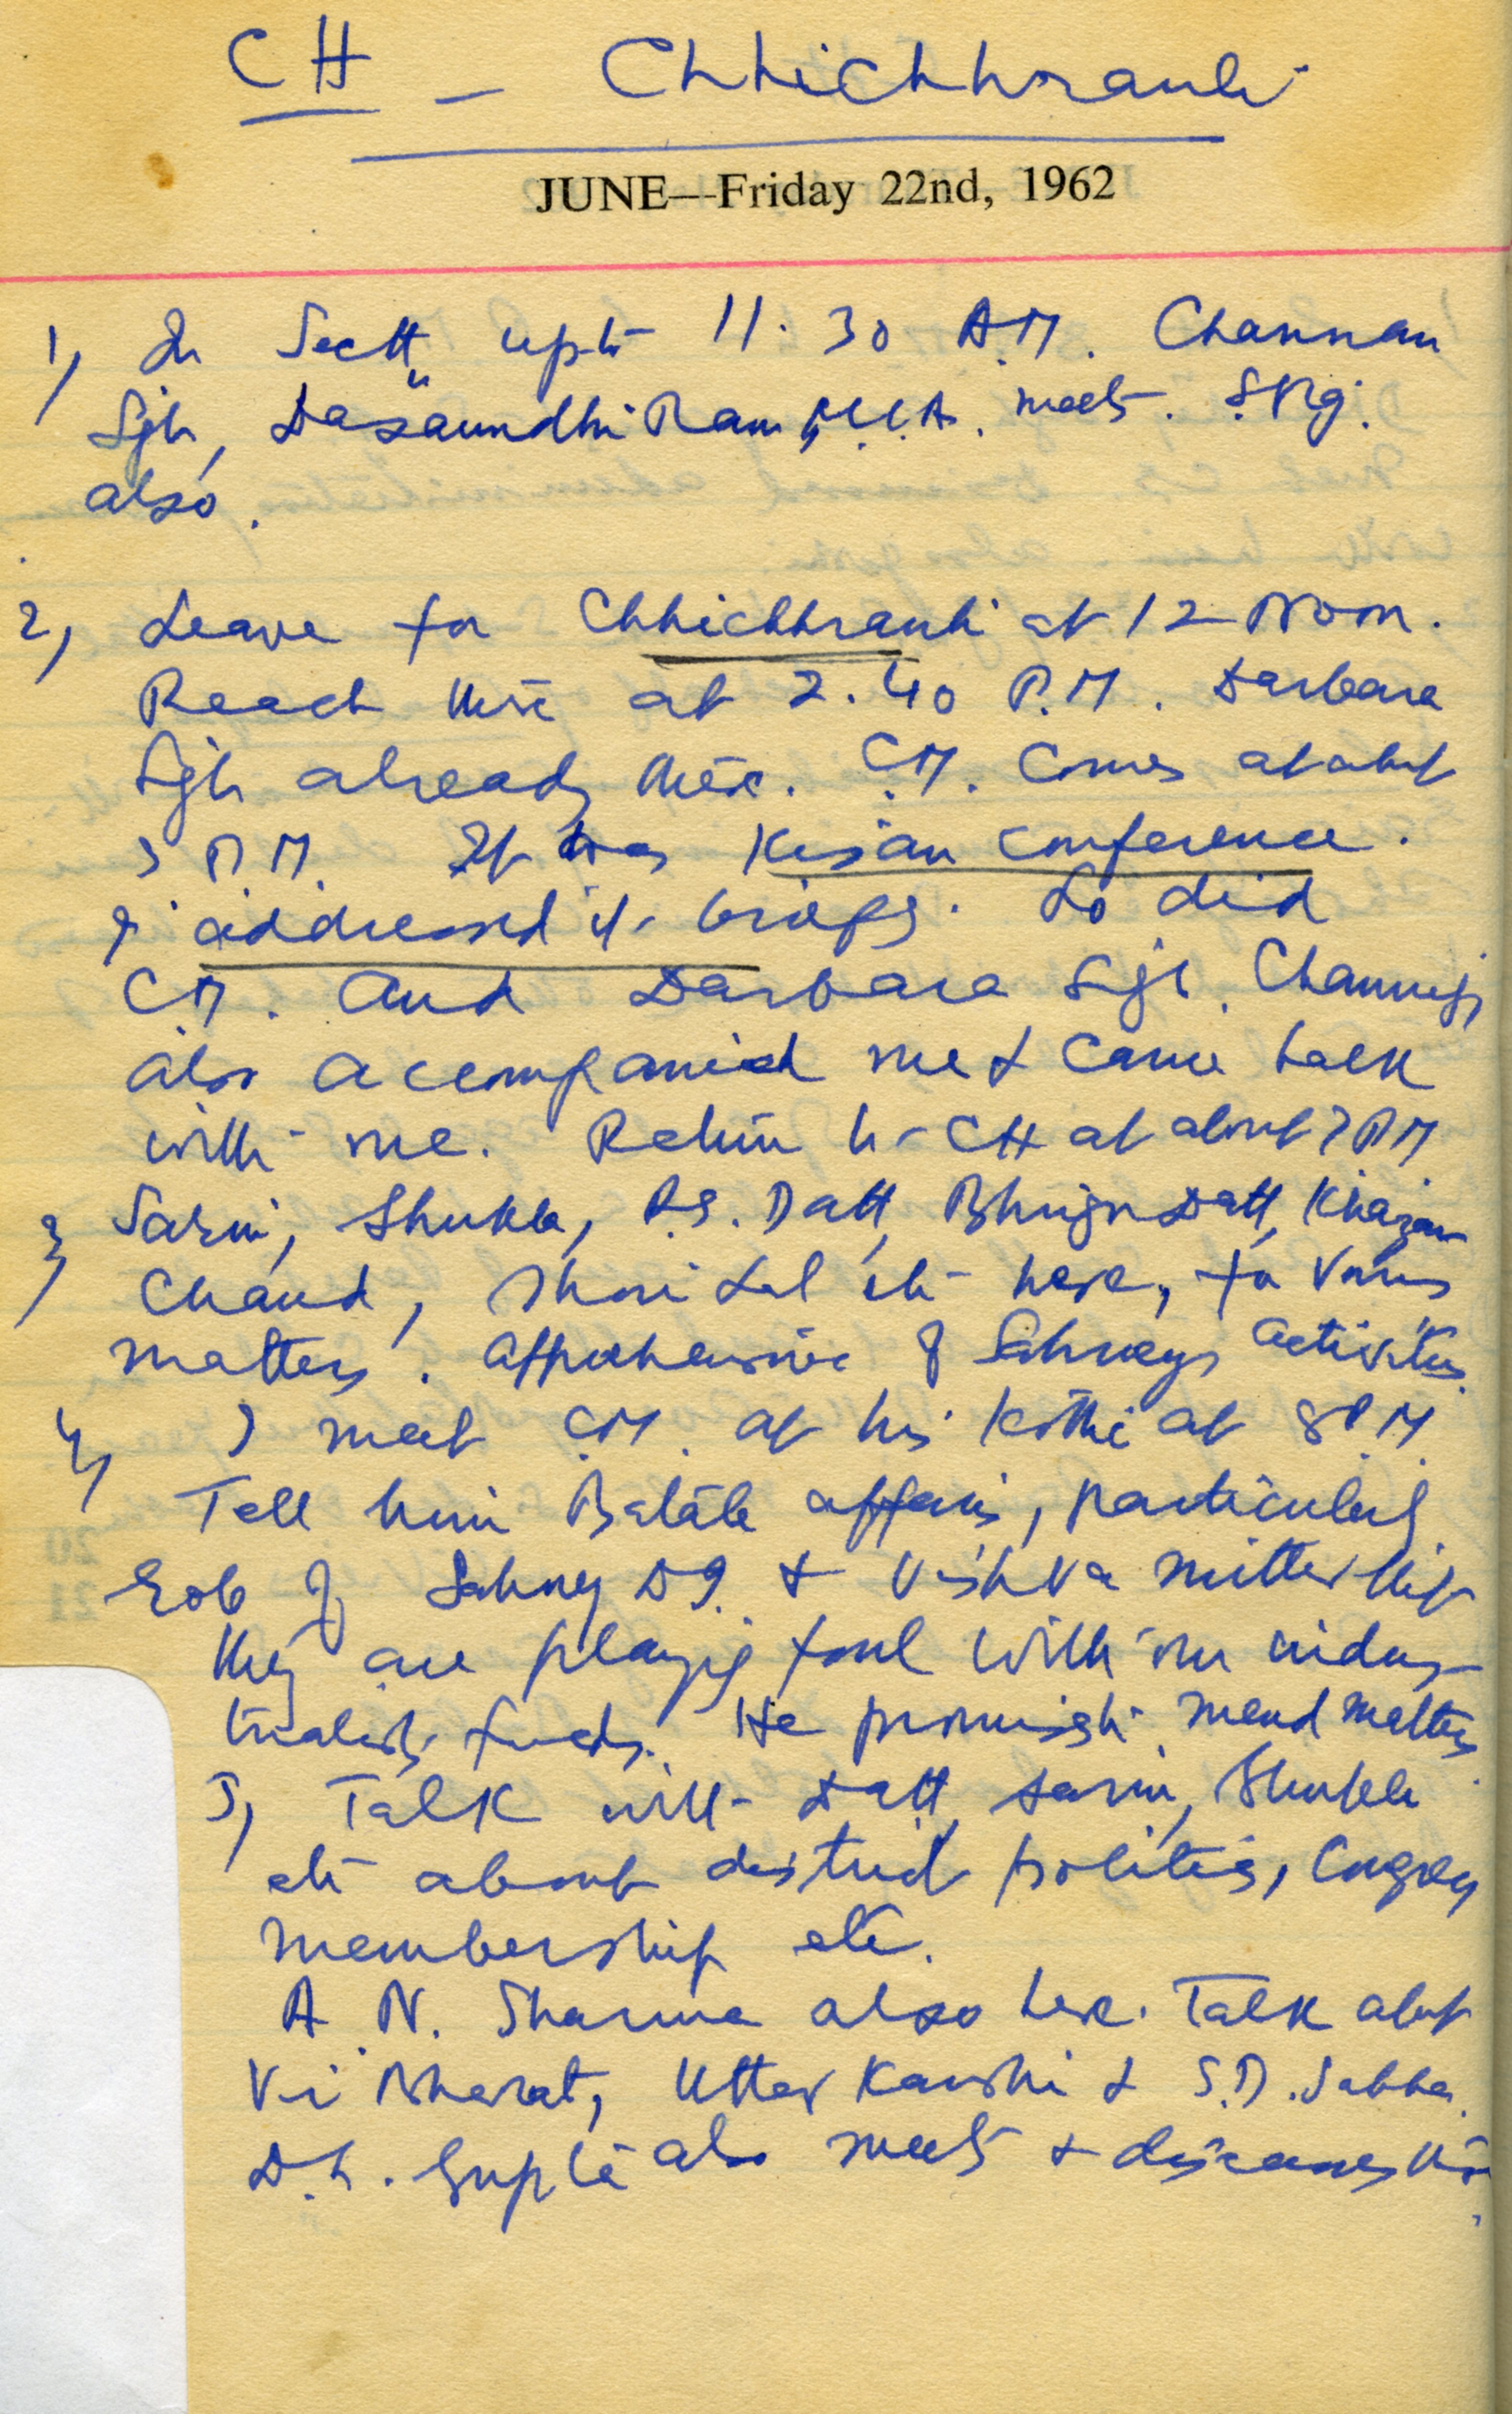 CH - Chhichhrauli
JUNE—Friday 22nd, 1962
1) In Sectt. upto 11.30 A.M. Channan
Sgh, Dasaundhi Ram M.L.A. meets.
also.
2) Leave for Chhichhrauli at 12 Noon.
Reach there at 2.40 P.M. Darbara
Sgh already there. C.M. Comes at abut
3 P.M. It was Kisan Conference.
I addressed it briefly. So did
C.M. and Darbara Sgh.
also accompanied me & came back
with me. Return to CH at about 7 P.M.
3) Sarin, Shukla, P.S. Datt, Bhrigu Datt, Khazan
Chand, Shori Lal etc here, for various
matters. Apprehensive of Sahney's activities.
4) I meet C.M. at his Kothi at 8 P.M.
Tell him Batala affairs, particularly
role of Sahney & Vishva Mitter that
they are playing foul with our indus-
trialists friends. He promises to mend matters.
5) Talk with Datt, Sarin, Shukla
etc about district politics, Congress
membership etc.
A. N. Sharma also here. Talk abut
Vir Bharat, Uttar Kanshi & S.D. Sabha.
D.L. Gupta also meets & discusses